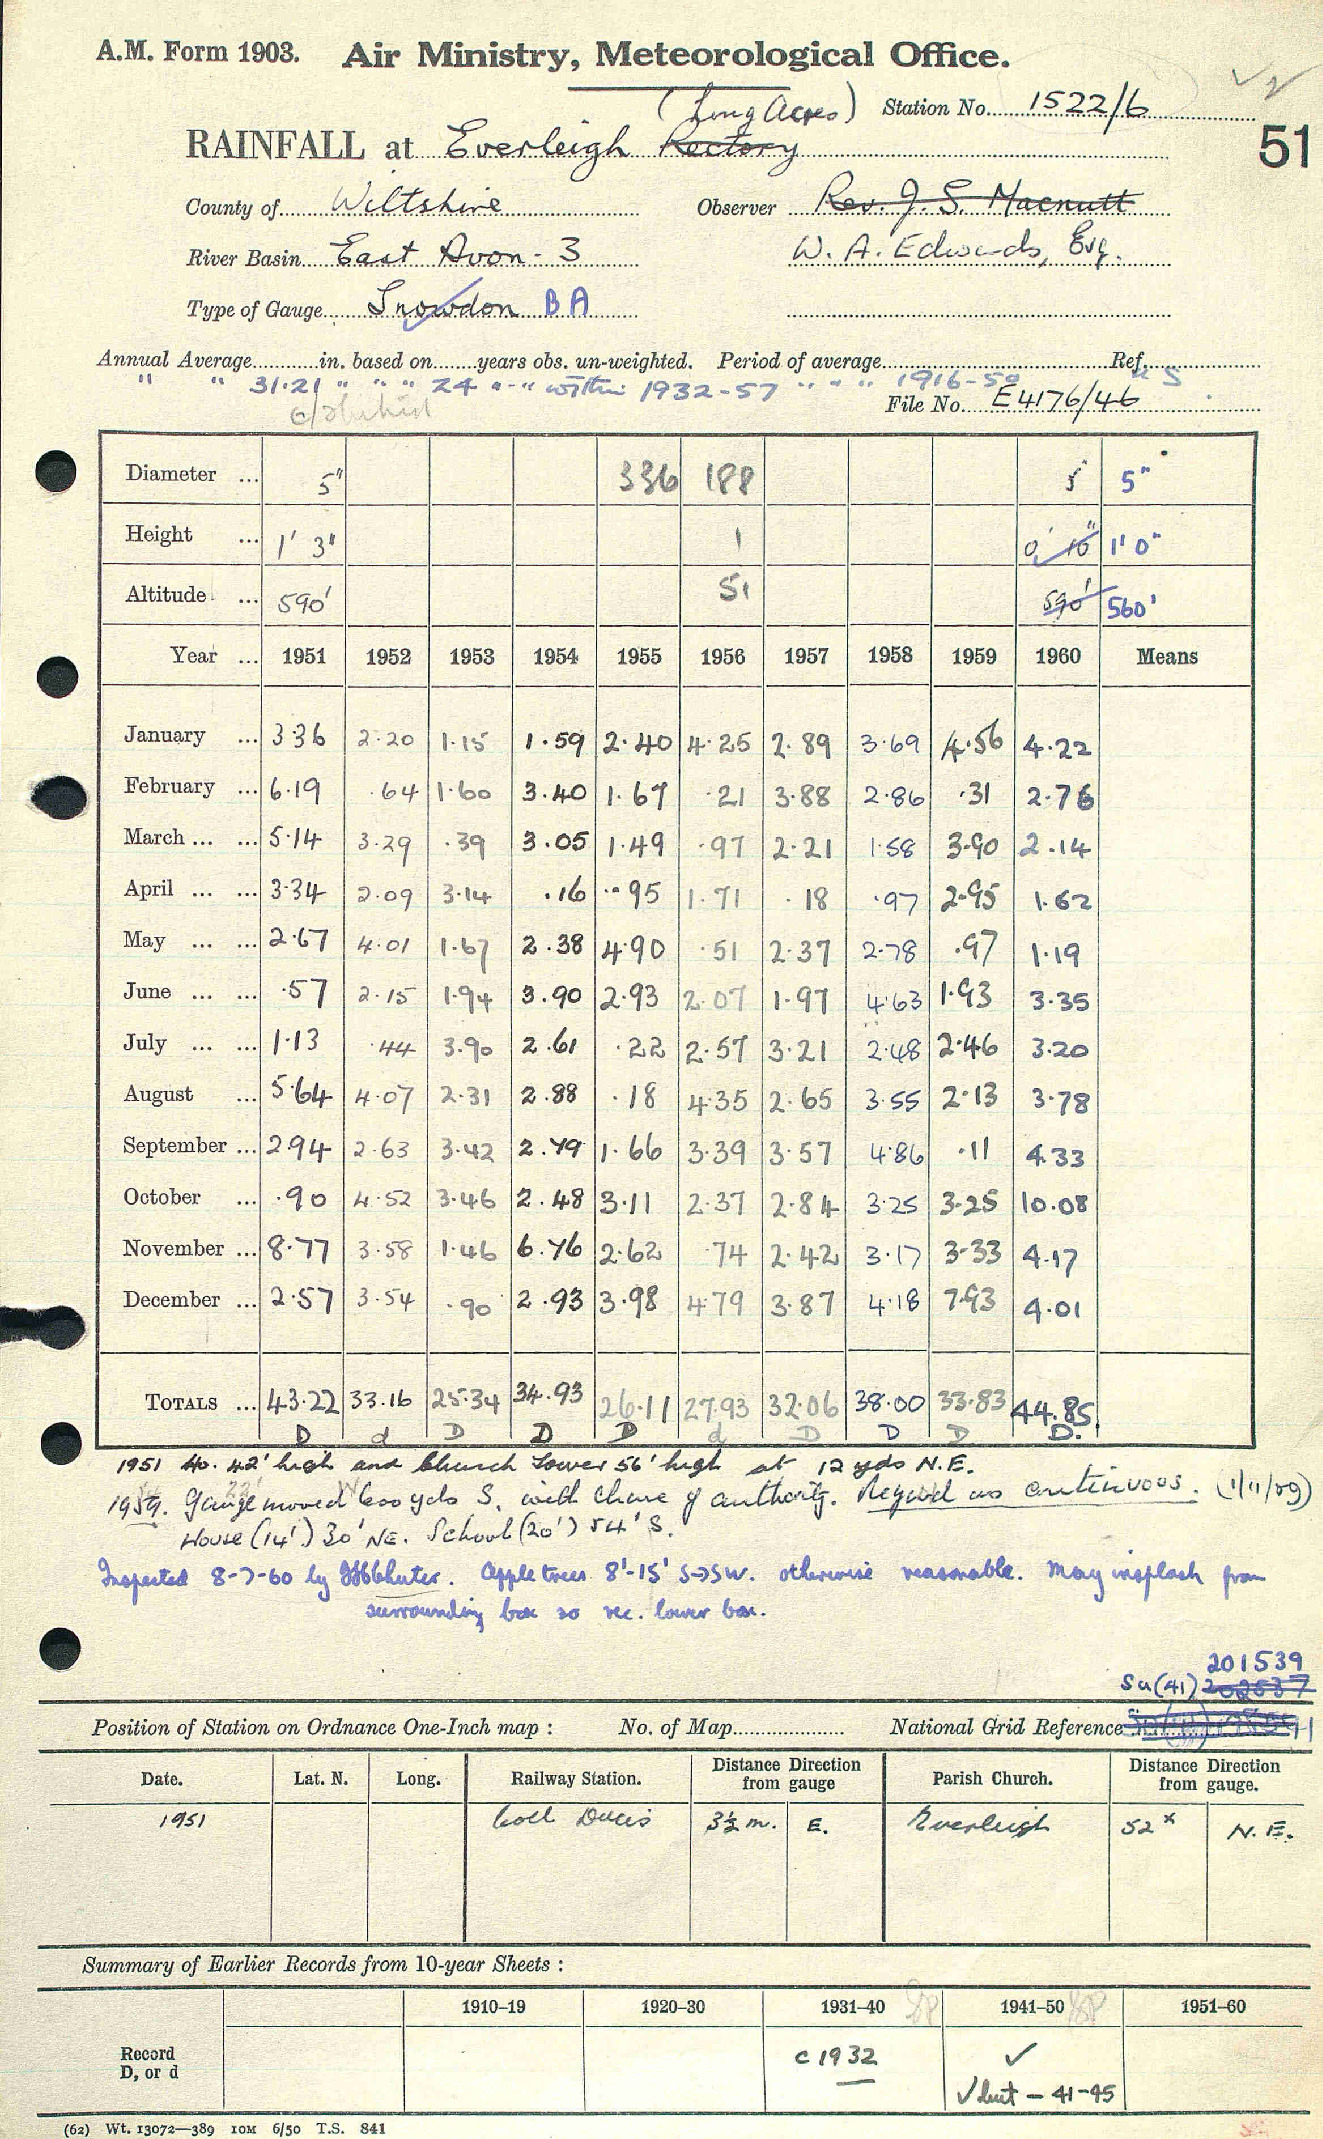 A.M. Form 1903. Air Ministry, Meteorological Office.
(Long Acres) Station No. 1522/6
RAINFALL at Everleigh Rectory
51
County of Wiltshire Observer Rev. J. S. Macnutt
River Basin East Avon - 3 W. A. Edwards, Esq.
Type of Gauge Snowdon BA
Annual Average in. based on years obs. un-weighted. Period of average Ref.
" " 31.21 " " " 24 " - " within 1932-57 " " " 1916-50
File No. E4176/46
Diameter ... 5" 336 188 5 5"
Height ... 1' 3" 1 0' 10" 1' 0"
Altitude ... 590' 51 590' 560'
Year ... 1951 1952 1953 1954 1955 1956 1957 1958 1959 1960 Means
January ... 3.36 2.20 1.15 1.59 2.40 4.25 2.89 3.69 4.56 4.22
February ... 6.19 .64 1.60 3.40 1.67 .21 3.88 2.86 .31 2.76
March ... ... 5.14 3.29 .39 3.05 1.49 .97 2.21 1.58 3.90 2.14
April ... ... 3.34 2.09 3.14 .16 .95 1.71 .18 .97 2.95 1.62
May ... ... 2.67 4.01 1.67 2.38 4.90 .51 2.37 2.78 .97 1.19
June ... ... .57 2.15 1.94 3.90 2.93 2.07 1.97 4.63 1.93 3.35
July ... ... 1.13 .44 3.90 2.61 .22 2.57 3.21 2.48 2.46 3.20
August ... 5.64 4.07 2.31 2.88 .18 4.35 2.65 3.55 2.13 3.78
September ... 2.94 2.63 3.42 2.79 1.66 3.39 3.57 4.86 .11 4.33
October ... .90 4.52 3.46 2.48 3.11 2.37 2.84 3.25 3.25 10.08
November ... 8.77 3.58 1.46 6.76 2.62 .74 2.42 3.17 3.33 4.17
December ... 2.57 3.54 .90 2.93 3.98 4.79 3.87 4.18 7.93 4.01
TOTALS ... 43.22 33.16 25.34 34.93 26.11 27.93 32.06 38.00 33.83 44.85
D d D D D d D D D D.
1951 Ho. 42' high and Church Tower 56' high at 12 yds N.E.
1959. Gauge moved 600 yds S. with change of authority. Regard as continuous. (1/11/59)
House (14') 30' NE. School (20') 54' S.
Inspected 8-7-60 by Apple trees 8'-15' S→SW. otherwise reasonable. May insplash from
surrounding box so rec. lower box.
201539
SU(41) 202537
Position of Station on Ordnance One-Inch map : No. of Map National Grid Reference
Date. Lat. N. Long. Railway Station. Distance Direction from gauge Parish Church. Distance Direction from gauge.
1951 Coll Ducis 3½ m. E. Everleigh 52 x N.E.
Summary of Earlier Records from 10-year Sheets :
1910-19 1920-30 1931-40 1941-50 1951-60
Record D, or d c 1932 ✓
✓ but - 41-45
(62) Wt. 13072—389 10M 6/50 T.S. 841